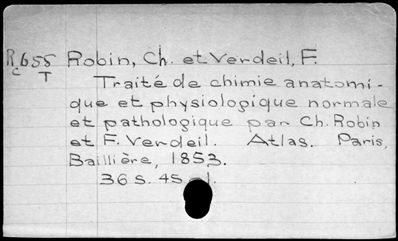 R655 Robin, Ch. et Verdeil, F.
C T Traité de chimie anatomi-
que et physiologique normale
et pathologique par Ch. Robin
et F. Verdeil. Atlas. Paris,
Baillière, 1853.
36 s. 45